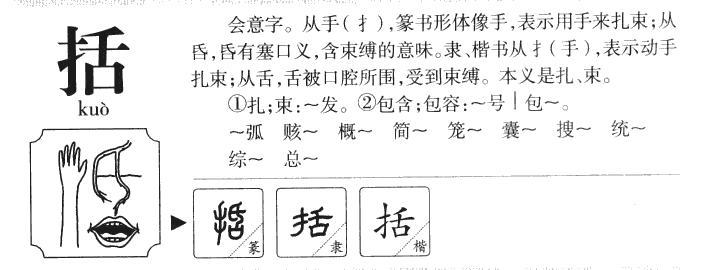 括
kuò
会意字。从手(扌),篆书形体像手,表示用手来扎束;从
昏,昏有塞口义,含束缚的意味。隶、楷书从扌(手),表示动手
扎束;从舌,舌被口腔所围,受到束缚。本义是扎、束。
①扎;束:~发。②包含;包容:~号|包~。
~弧 赅~ 概~ 简~ 笼~ 囊~ 搜~ 统~
综~ 总~
篆
括 隶
括 楷